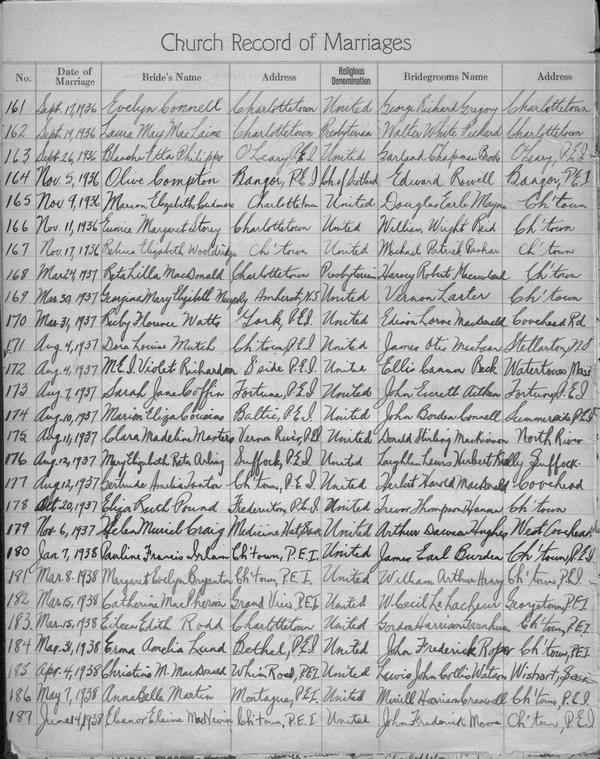 Church Record of Marriages
No. Date of Marriage Bride's Name Address Religious Denomination Bridegrooms Name Address
161 Sept. 17, 1936 Evelyn Connell Charlottetown United George Richard Gregory Charlottetown
162 Sept. 19, 1936 Laura May MacLaine Charlottetown Presbyterian Walter White Pickard Charlottetown
163 Sept. 26, 1936 Blanche Etta Philipps O'Leary P.E.I United Garland Chapman O'Leary, P.E.I
164 Nov. 5, 1936 Olive Compton Bangor, P.E.I Ch of Scotland Edward Rowell Bangor, P.E.I
165 Nov. 9, 1936 Marion Elizabeth Cudmore Charlottetown United Douglas Earle Mayne Ch'town
166 Nov. 11, 1936 Eunice Margaret Storey Charlottetown United William Wright Reid Ch'town
167 Nov. 17, 1936 Rebecca Elizabeth Wooldridge Ch'town United Michael Patrick Ch'town
168 Mar 24, 1937 Reta Lilla MacDonald Charlottetown Presbyterian Harvey Robert Ch'town
169 Mar. 30, 1937 Georgina Mary Elizabeth Murphy Amherst, N.S United Vernon Larter Ch'town
170 Mar. 31, 1937 Ruby Florence Watts York, P.E.I. United Edison Lorne MacDonald Covehead Rd.
171 Aug. 4, 1937 Dora Louise Mutch Ch'town, P.E.I United James Otis MacLean Stellarton, N.S
172 Aug. 4, 1937 M.E.I. Violet Richardson S'side P.E.I. Unite Ellis Cannon Beck Watertown Mass
173 Aug. 7, 1937 Sarah Jane Coffin Fortune, P.E.I United John Everett Aitken Fortune, P.E.I
174 Aug. 10, 1937 Marion Eliza Cousins Baltic, P.E.I United John Borden Connell Summerside P.E.I
175 Aug. 11, 1937 Clara Madeline Masters Vernon River, P.E.I United Donald Stirling MacKinnon North River
176 Aug. 12, 1937 Mary Elizabeth Reta Arbing Suffolk, P.E.I United Laughlin Lewis Herbert Kelly Suffolk
177 Aug. 12, 1937 Gertrude Amelia Ch'town, P.E.I United Herbert Harold MacDonald Covehead
178 Oct 20, 1937 Eliza Ruth Pound Fredericton, P.E.I United Trevor Thompson Ch'town
179 Nov. 6, 1937 Helen Muriel Craig Medicine Hat, Sask United Arthur Dawson Hughes West Covehead
180 Jan 7, 1938 Pauline Francis Ch'town, P.E.I. United James Earl Burden Ch'town, P.E.I
181 Mar. 8. 1938 Margaret Evelyn Bryenton Ch'town, P.E.I. United William Arthur Henry Ch'town, P.E.I.
182 Mar. 15, 1938 Catherine MacPherson Grand View, P.E.I United W. Cecil LeLacheur Georgetown, P.E.I
183 Mar. 15, 1938 Eileen Edith Rodd Charlottetown United Gordon Harrison Farquharson Ch'town, P.E.I
184 Mar. 31, 1938 Erma Amelia Lund Bethel, P.E.I United John Frederick Roper Ch'town, P.E.I
185 Apr. 4, 1938 Christine M. MacDonald Whim Road, P.E.I United Lewis John Collis Watson Wishart, Sask
186 May 7, 1938 Annabelle Martin Montague, P.E.I. United Murill Harrison Ch'town, P.E.I
187 June 14, 1938 Eleanor Elaine MacNevin Ch'town, P.E.I. United John Frederick Moore Ch'town, P.E.I